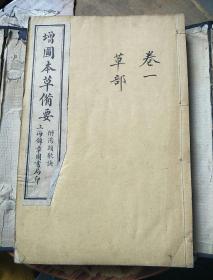 增圖本草備要
附湯頭歌訣
上海錦章圖書局印
卷一
草部